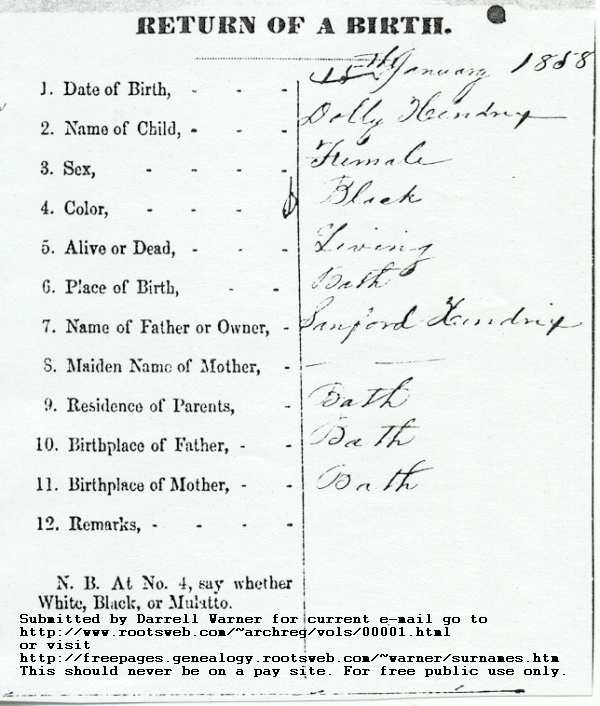 RETURN OF A BIRTH.
1. Date of Birth, - - - 15th January 1858
2. Name of Child, - - - Dolly Hendrix
3. Sex, - - - - Female
4. Color, - - - Black
5. Alive or Dead, - - - Living
6. Place of Birth, - - Bath
7. Name of Father or Owner, - Sanford Hendrix
8. Maiden Name of Mother, -
9. Residence of Parents, - Bath
10. Birthplace of Father, - - Bath
11. Birthplace of Mother, - - Bath
12. Remarks, - - - -
N. B. At No. 4, say whether
White, Black, or Mulatto.
Submitted by Darrell Warner for current e-mail go to
http://www.rootsweb.com/~archreg/vols/00001.html
or visit
http://freepages.genealogy.rootsweb.com/~warner/surnames.htm
This should never be on a pay site. For free public use only.